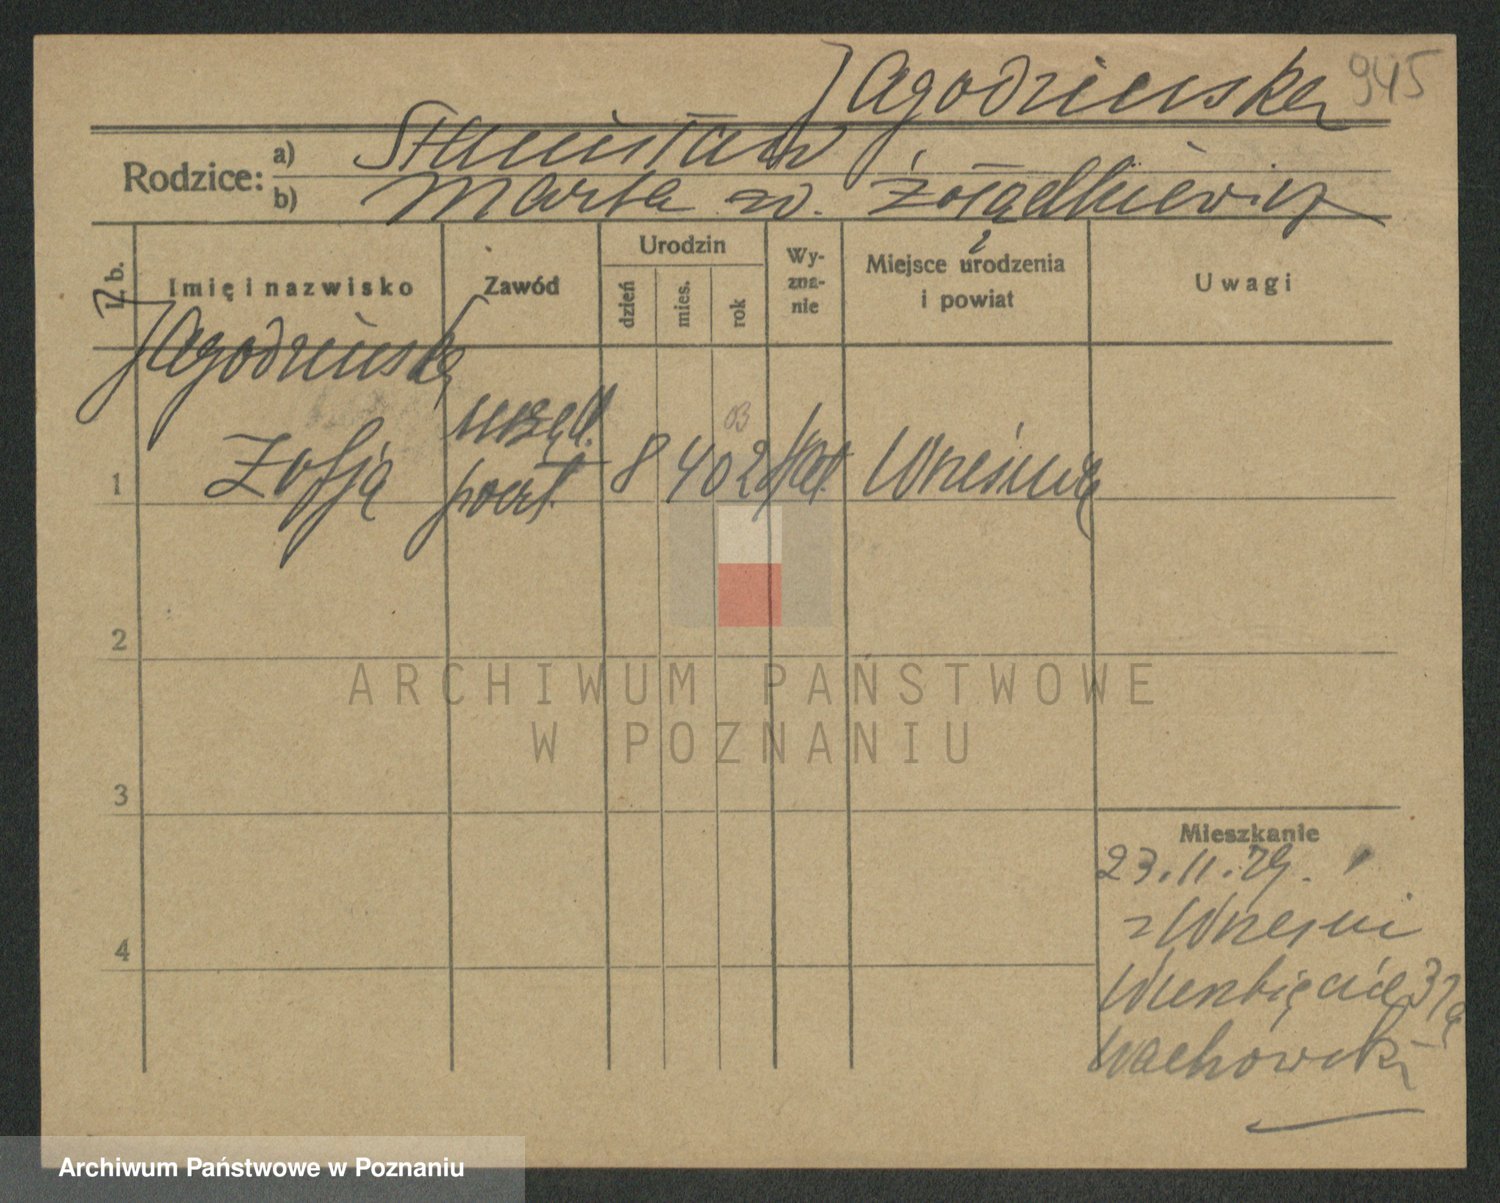 Jagodzińska 945
Rodzice: a) Stanisław
b) Marta zd. Żołądkiewicz
L. b.
Imię i nazwisko
Zawód
Urodzin
dzień
mies.
rok
Wy-
zna-
nie
Miejsce urodzenia
i powiat
Uwagi
Jagodzińska
urzęd. 03
1 Zofja poczt. 8 4 02 kat. Września
2
3
4
Mieszkanie
23.11.29.
z Wrześni
Wierzbięcice 37a
Wachowski
ARCHIWUM PAŃSTWOWE
W POZNANIU
Archiwum Państwowe w Poznaniu